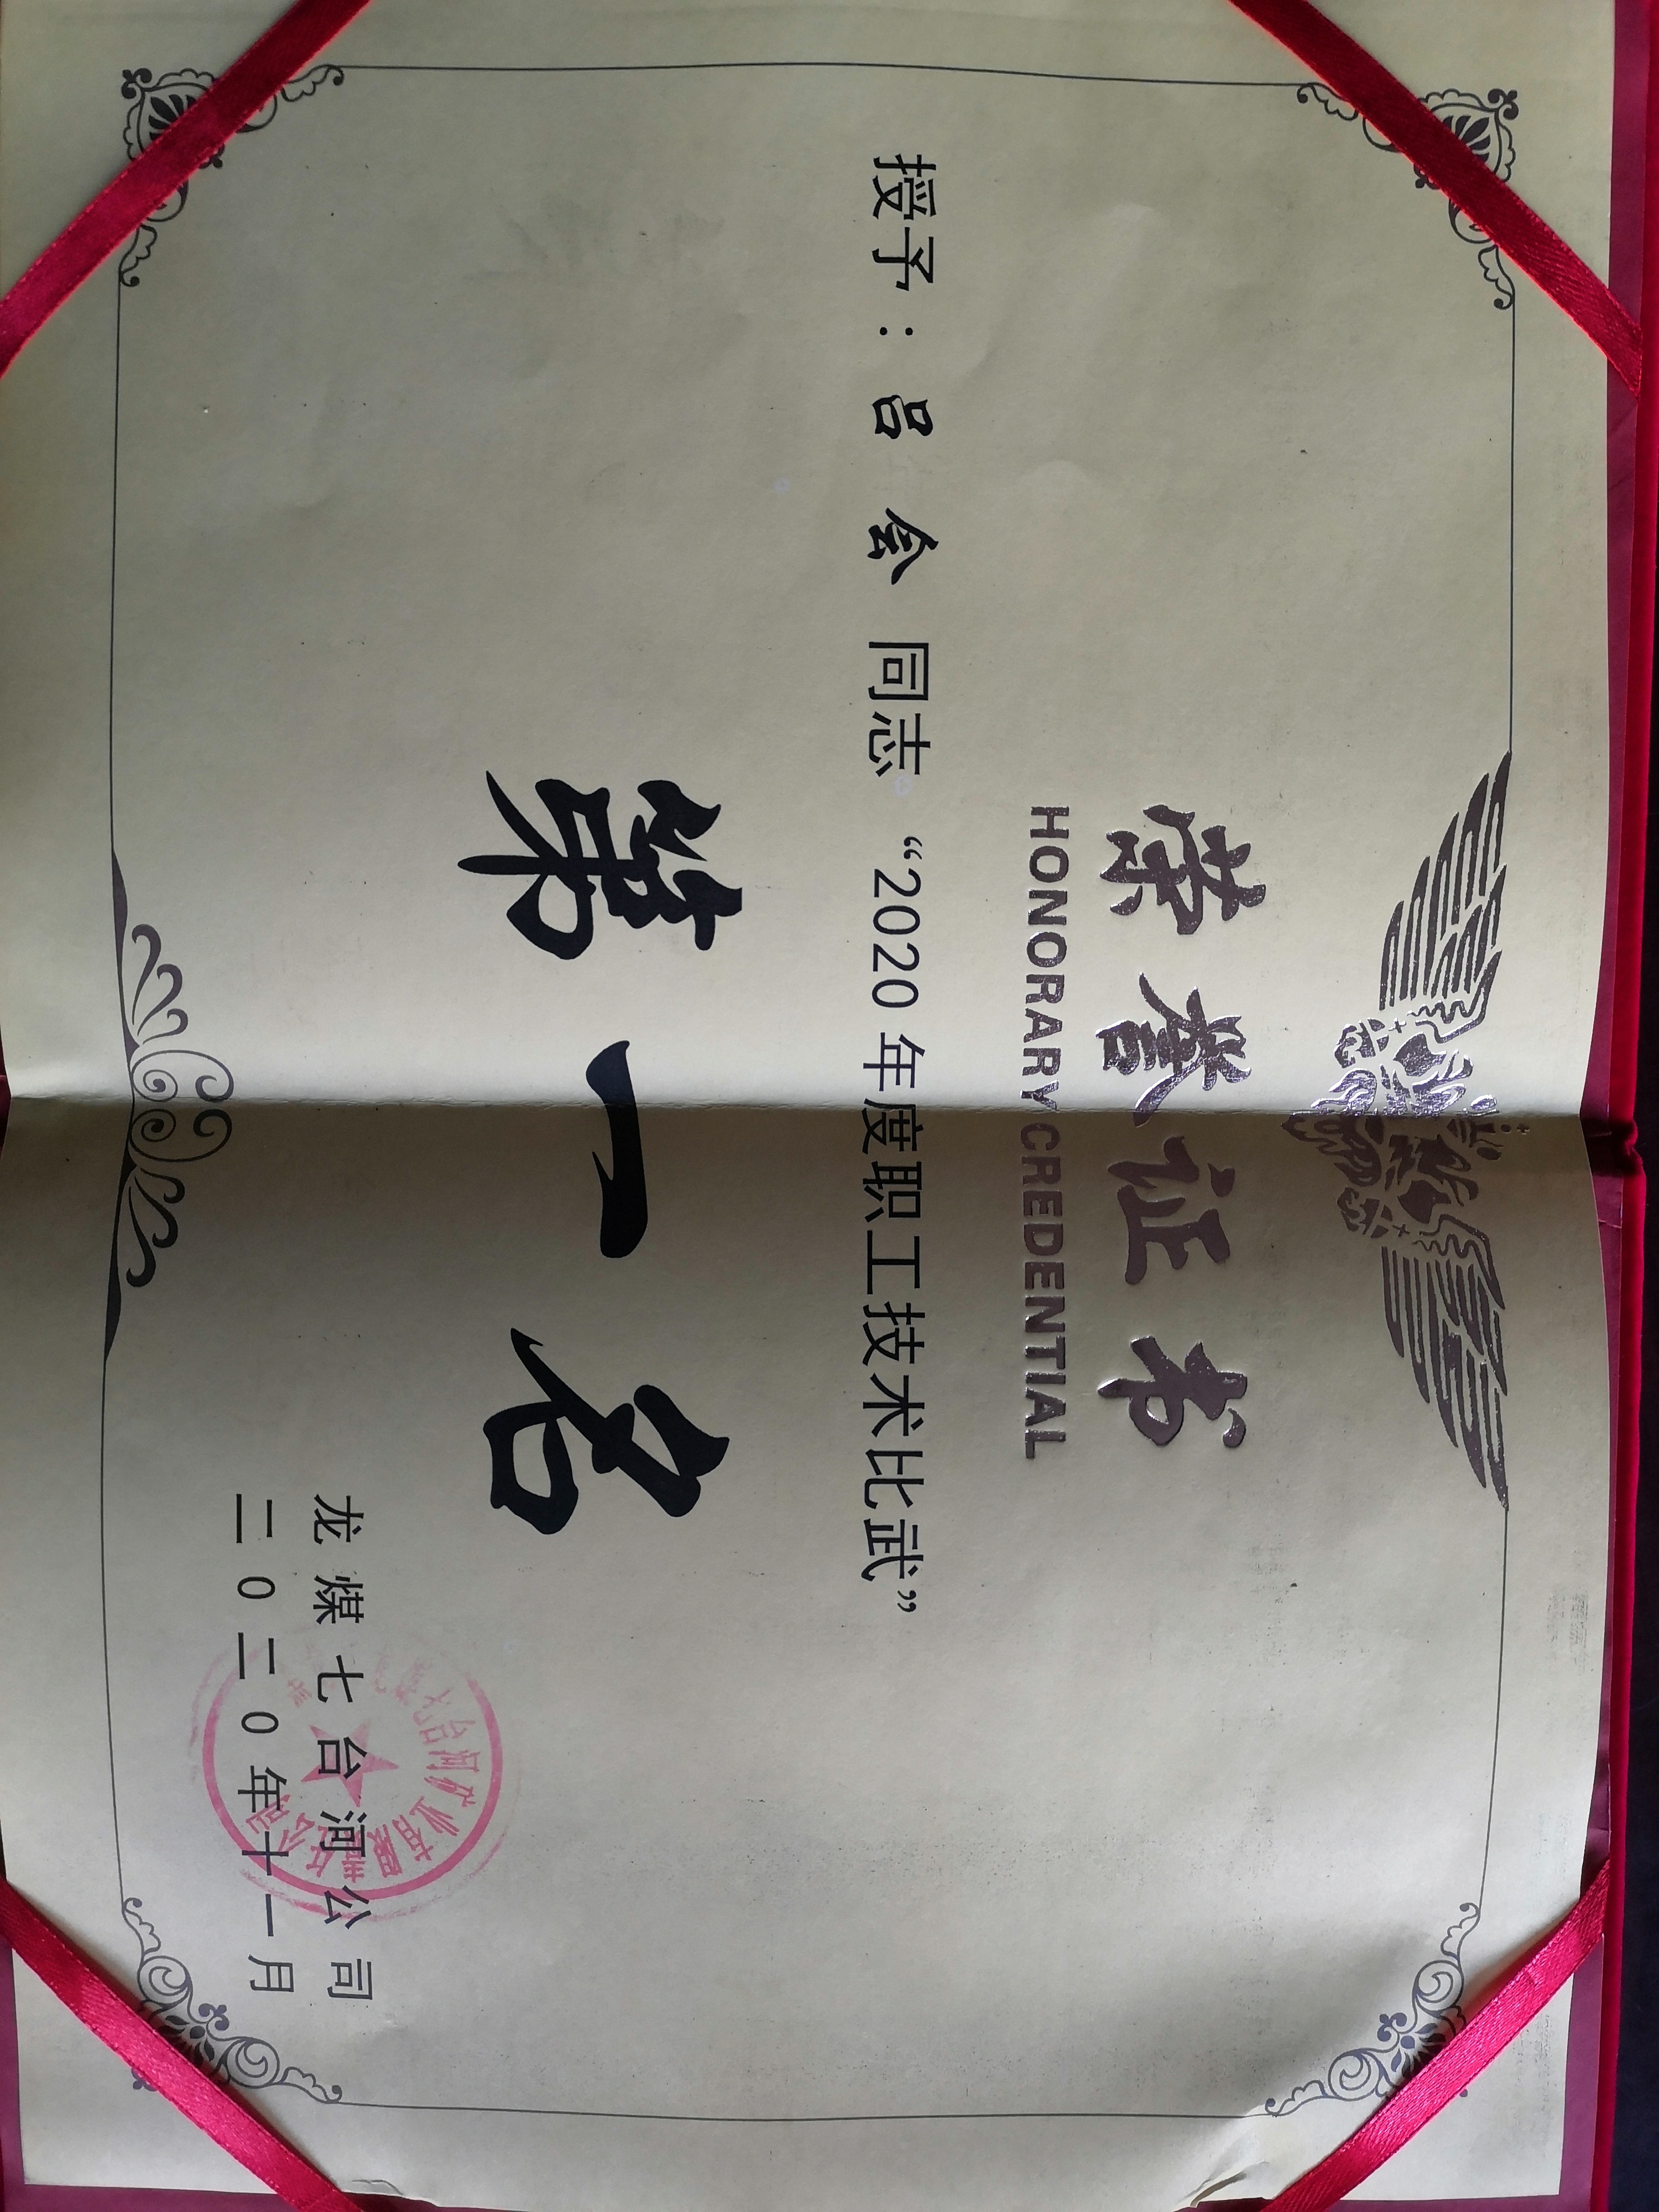 荣誉证书
HONORARY CREDENTIAL
授予：吕会同志“2020年度职工技术比武”
第一名
龙煤七台河公司
二0二0年十一月
七台河矿业有限责任公司